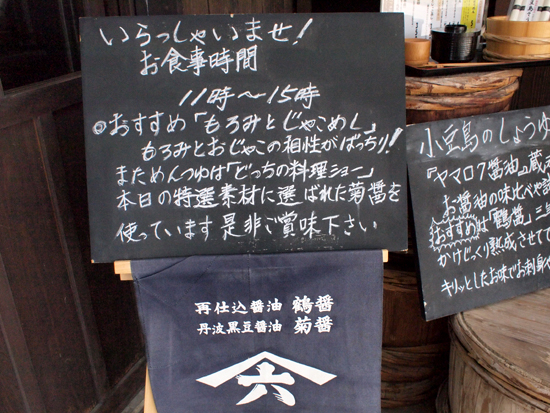 いらっしゃいませ!
お食事時間
11時〜15時
◎おすすめ「もろみとじゃこめし」
もろみとおじゃこの相性がばっちり!
まためんつゆは「どっちの料理ショー」
本日の特選素材に選ばれた菊醤を
使っています是非ご賞味下さい
再仕込醤油 鶴醤
丹波黒豆醤油 菊醤
六
小豆島のしょうゆ
『ヤマロク醤油』蔵
お醤油の味比べや
おすすめは「鶴醤」三
かけじっくり熟成させて
キリッとしたお味でお刺身